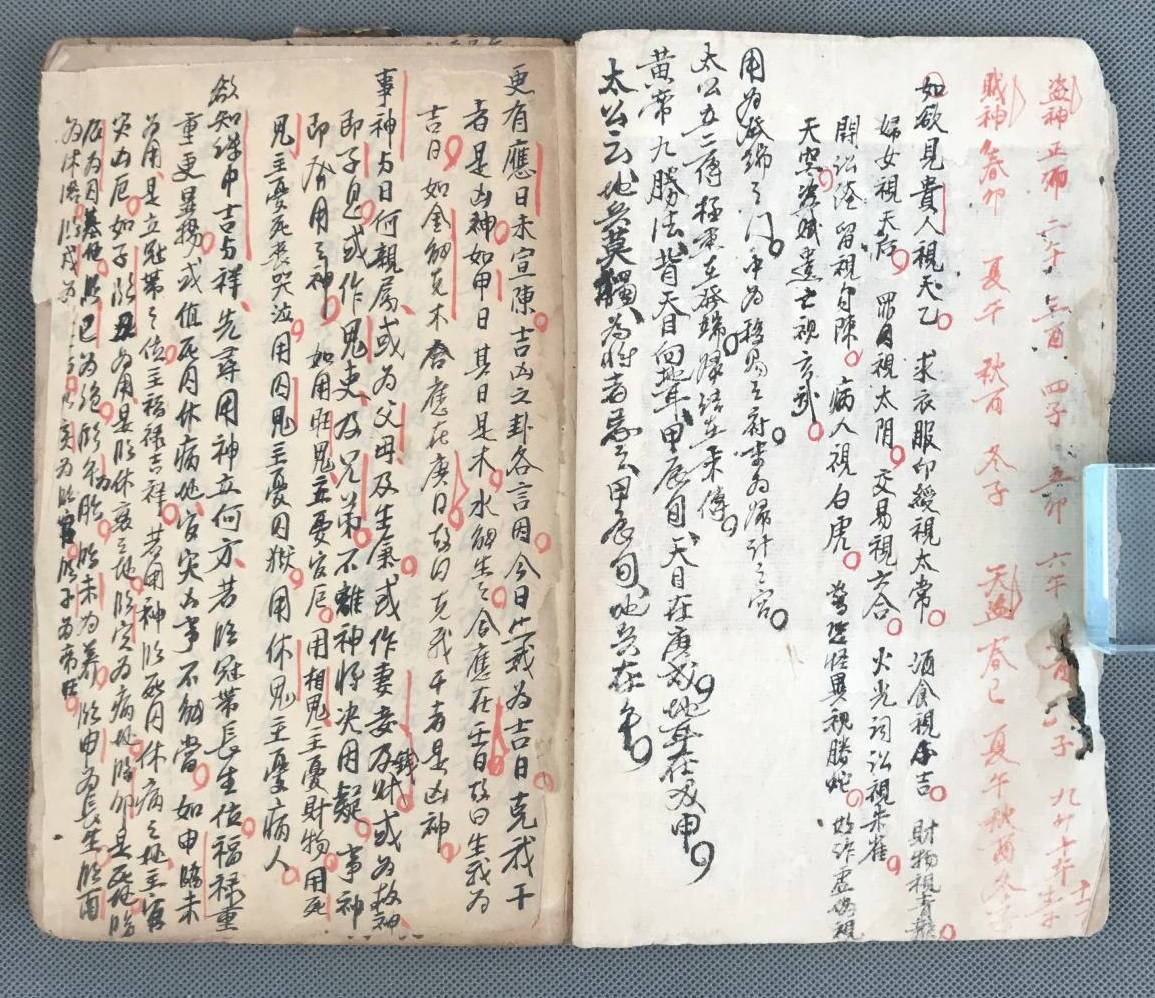 盗神 正卯 二午 三酉 四子 五卯 六午 子 九卯 十午
賊神 春卯 夏午 秋酉 冬子 天盗 春巳 夏午 秋酉 冬子
如欲見貴人視天乙 求衣服印綬視太常 酒食視子吉 財物視青龍
婦女視天后 陰日視太陰 交易視六合 火光詞訟視朱雀
開訟淹留視勾陳 病人視白虎 驚恐怪異視騰蛇 奸詐虛偽視
天空 盜賊遺亡視玄武
用為發端之門 中為移易之府 末為歸計之宮
太公五三傳極要在發端 歸結在末傳
黃帝九勝法 背天目向地耳 甲辰旬天目在庚戌 地耳在戊申
太公云地兵莫觸為將者忌云甲辰旬地兵在
更有應日未宣陳 吉凶之卦各言因 今日生我為吉日 克我干
者是凶神 如甲日 其日是木 水能生合應在壬日 故曰生我為
吉日 如金能克木 合應在庚日 故曰克我干者是凶神
事神与日何親属 或為父母及生氣 或作妻妾及財錢 或為救神
即子息 或作鬼吏及兄弟 不離神將决用疑 事神
即發用之神 如用旺鬼主憂官厄 用相鬼主憂財物 用死
鬼主憂死喪哭泣 用囚鬼主憂囚獄 用休鬼主憂病人
欲知課中吉与祥 先尋用神立何方 若臨冠帶長生位 福禄重
重更显揚 或值死月休病地 官灾凶事不能當 如申臨未
為用 是立冠帶之位 主福禄吉祥 若用神臨死月休病之地 主官
灾凶厄 如子臨丑為用 是臨休衰之地 臨寅為病地 臨卯是死地 臨
辰為囚墓地 臨巳為絕 臨午為胎 臨未為养 臨申為長生 臨酉
為沐浴 臨戌為 亥為臨官 臨子為帝旺